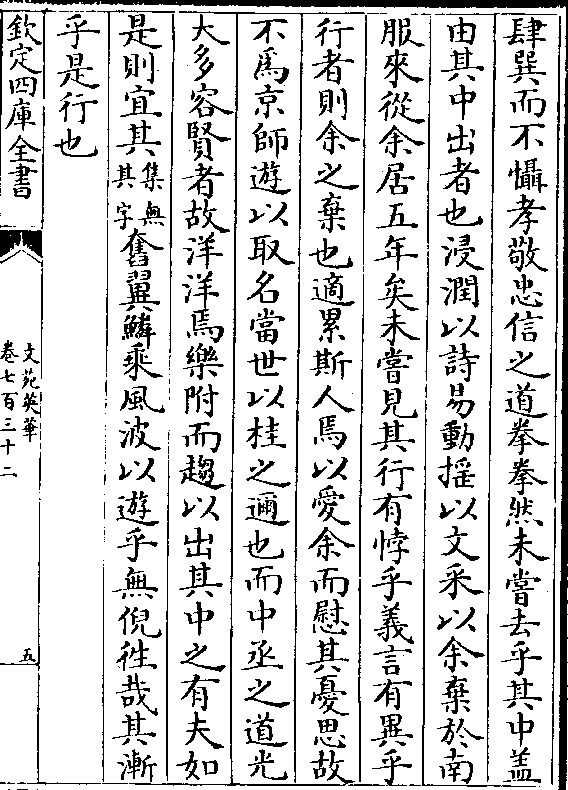 肆巽而不懾孝敬忠信之道拳拳然未嘗去乎其中盖
由其中出者也浸潤以詩易動摇以文采以余棄於南
服來從余居五年矣未嘗見其行有悖乎義言有異乎
行者則余之棄也適累斯人焉以愛余而慰其憂思故
不爲京師遊以取名當世以桂之邇也而中丞之道光
大多容賢者故洋洋焉樂附而趨以出其中之有夫如
是則宜其集無其字奮翼鱗乘風波以遊乎無倪徃哉其漸
乎是行也
欽定四庫全書
文苑英華
卷七百三十二
五